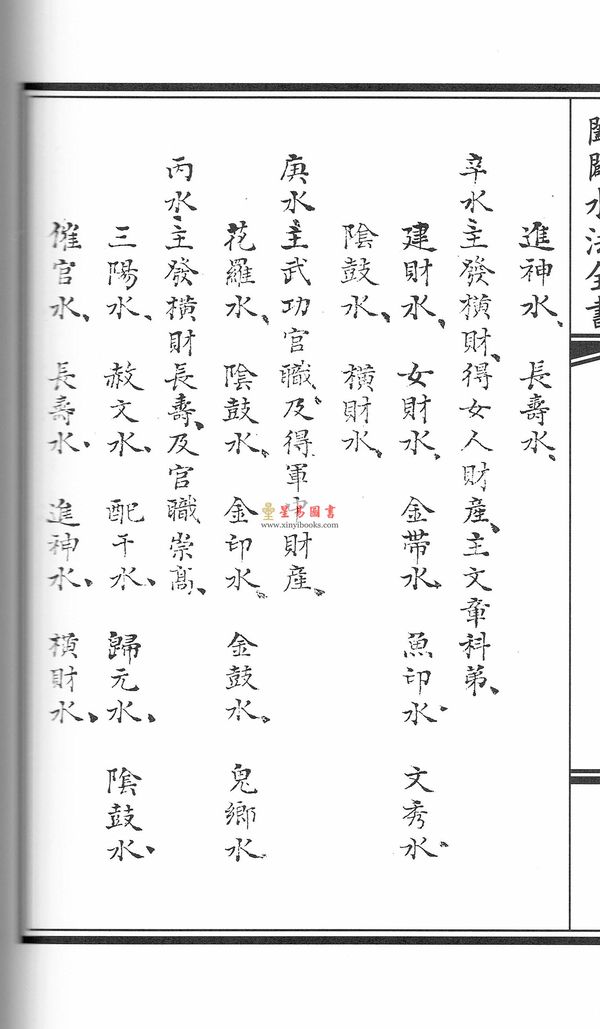 水法全書
進神水、 長壽水、
辛水主發橫財、得女人財產、主文章科弟、
建財水、 女財水、 金帶水、 魚印水、 文秀水、
陰鼓水、 橫財水、
庚水主武功官職、及得軍中財產、
花羅水、 陰鼓水、 金印水、 金鼓水。 鬼鄉水
丙水、主發橫財長壽、及官職崇高、
三陽水、 赦文水、 配干水、 歸元水、 陰鼓水、
催官水、 長壽水、 進神水、 橫財水、
星易圖書
www.xinyibooks.com